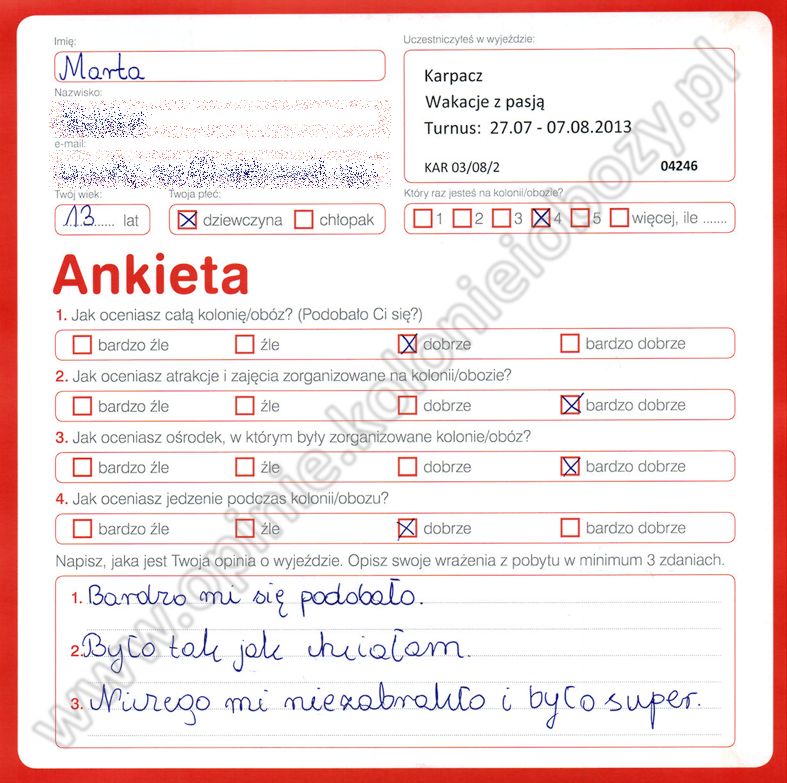 Imię:
Uczestniczyłeś w wyjeździe:
Marta
Karpacz
Nazwisko:
Wakacje z pasją
Turnus: 27.07 - 07.08.2013
e-mail:
KAR 03/08/2 04246
Twój wiek: Twoja płeć: Który raz jesteś na kolonii/obozie?
13 lat dziewczyna chłopak 1 2 3 4 5 więcej, ile .......
Ankieta
1. Jak oceniasz całą kolonię/obóz? (Podobało Ci się?)
bardzo źle źle dobrze bardzo dobrze
2. Jak oceniasz atrakcje i zajęcia zorganizowane na kolonii/obozie?
bardzo źle źle dobrze bardzo dobrze
3. Jak oceniasz ośrodek, w którym były zorganizowane kolonie/obóz?
bardzo źle źle dobrze bardzo dobrze
4. Jak oceniasz jedzenie podczas kolonii/obozu?
bardzo źle źle dobrze bardzo dobrze
Napisz, jaka jest Twoja opinia o wyjeździe. Opisz swoje wrażenia z pobytu w minimum 3 zdaniach.
1. Bardzo mi się podobało.
2. Było tak jak chciałam.
3. Niczego mi niezabrakło i było super.
www.opinie.kolonieiobozy.pl